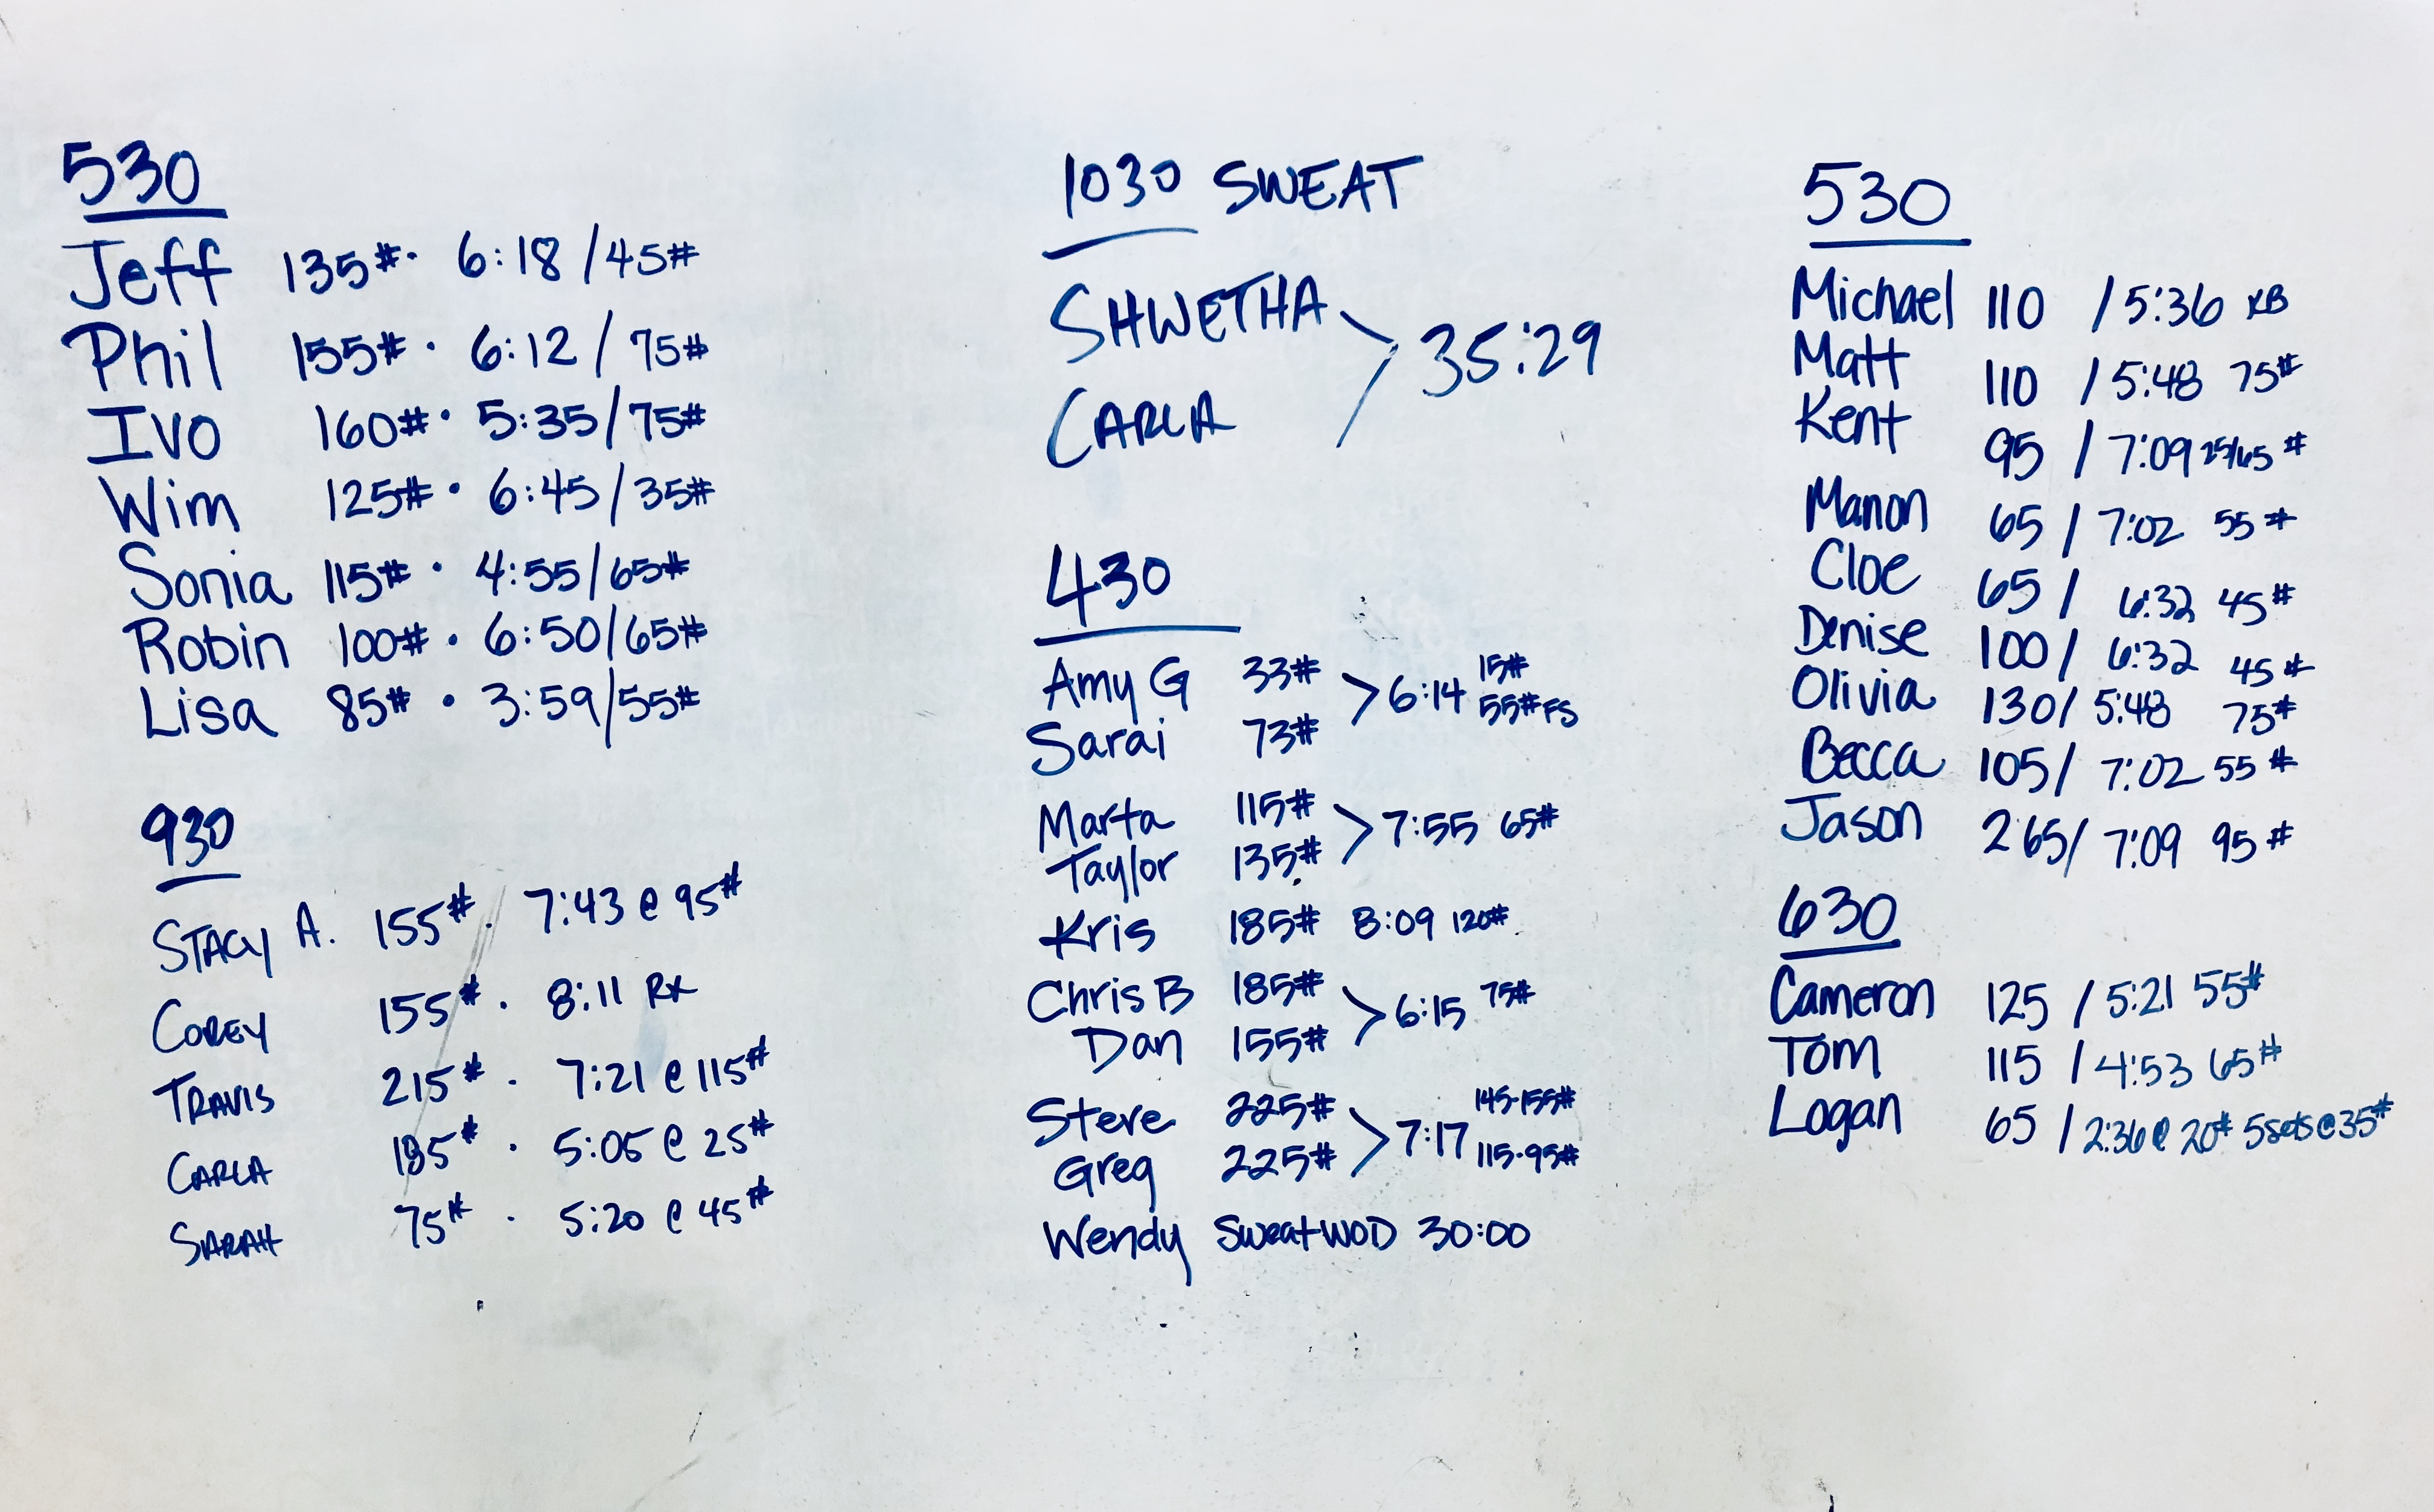 530
Jeff 135#· 6:18 /45#
Phil 155# · 6:12 / 75#
IVO 160# · 5:35/75#
Wim 125# · 6:45/35#
Sonia 115# · 4:55/65#
Robin 100# · 6:50/65#
Lisa 85# · 3:59/55#
930
STACY A. 155# · 7:43 @ 95#
COREY 155# · 8:11 RX
TRAVIS 215# · 7:21 @ 115#
CARLA · 5:05 @ 25#
SARAH 75# · 5:20 @ 45#
1030 SWEAT
SHWETHA
> 35:29
CARLA
430
Amy G 33# 15#
> 6:14
Sarai 73# 55# FS
Marta 115#
> 7:55 65#
Taylor 135#
Kris 185# 8:09 120#
Chris B 185#
> 6:15 75#
Dan 155#
Steve 225# 145-155#
> 7:17
Greg 225# 115-95#
Wendy Sweat WOD 30:00
530
Michael 110 / 5:36 KB
Matt 110 / 5:48 75#
Kent 95 / 7:09 25/65 #
Manon 65 / 7:02 55 #
Cloe 65 / 6:32 45#
Denise 100 / 6:32 45#
Olivia 130 / 5:48 75#
Becca 105 / 7:02 55 #
Jason 265/ 7:09 95 #
630
Cameron 125 / 5:21 55#
Tom 115 / 4:53 65#
Logan 65 / 2:36 @ 20# 5sets@35#